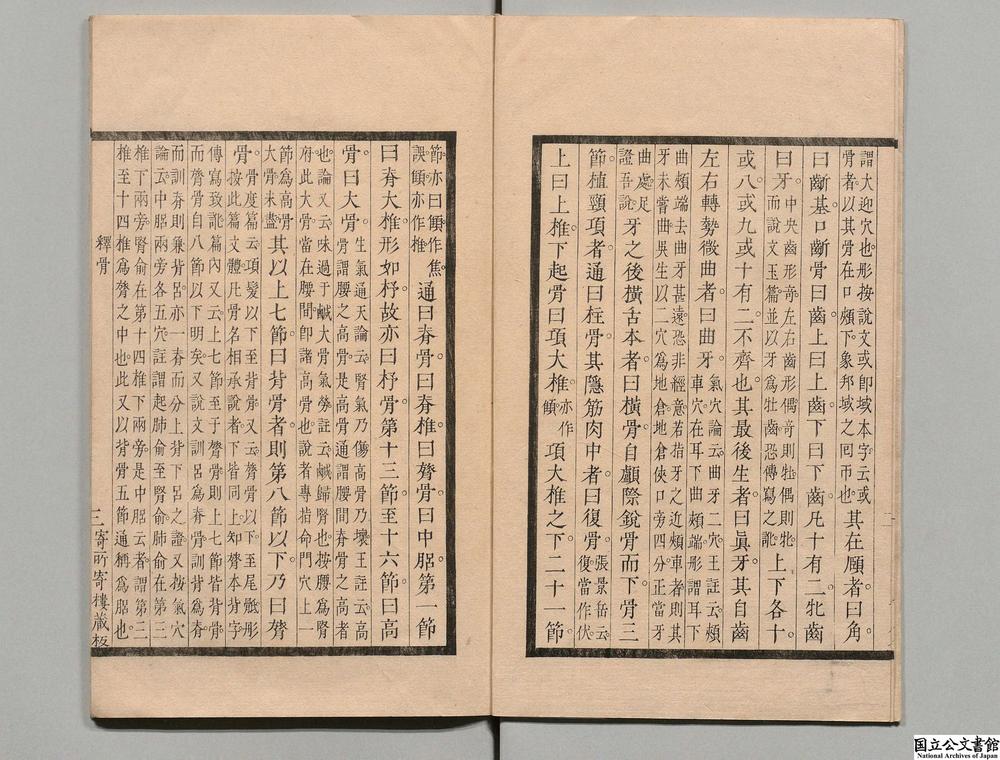 謂大迎穴也形按說文或即域本字云或
骨者以其骨在口頰下象邦域之囘帀也
其在頤者曰角
曰齗基口齗骨曰齒上曰上齒下曰下齒凡十有二牝齒
曰牙
中央齒形奇左右齒形偶奇則牡偶則牝
而說文玉篇並以牙爲牡齒恐傳寫之訛
上下各十
或八或九或十有二不齊也其最後生者曰眞牙其自齒
左右轉勢微曲者曰曲牙
氣穴論云曲牙二穴王註云頰
車穴在耳下曲頰端形謂耳下
曲頰端去曲牙甚遠恐非經意若指牙之近頰車者則其
牙未嘗曲吳生以二穴爲地倉地倉俠口旁四分正當牙
曲處足
證吾說
牙之後橫舌本者曰橫骨自顱際銳骨而下骨三
節植頸項者通曰柱骨其隱筋肉中者曰復骨
張景岳云
復當作伏
上曰上椎下起骨曰項大椎
亦作
項大椎之下二十一節
節亦曰䪼作焦
誤䪼亦作椎
通曰脊骨曰脊椎曰膂骨曰中䏚第一節
曰脊大椎形如杼故亦曰杼骨第十三節至十六節曰高
骨曰大骨
生氣通天論云腎氣乃傷高骨乃壞王註云高
骨謂腰之高骨是高骨通謂腰間脊骨之高者
也論又云味過于鹹大骨氣勞註云鹹歸腎也按腰爲腎
府此大骨當在腰間即諸高骨也說者專指命門穴上一
節爲高骨
大骨未盡
其以上七節曰背骨者則第八節以下乃曰膂
骨
骨度篇云項髮以下至背骨又云膂骨以下至尾骶彤
按此篇文體凡骨名相承說者下皆同上知膂本背字
傳寫致訛篇內又云上七節至于膂骨則上七節皆背骨
而膂骨自八節以下明矣又說文訓呂爲脊骨訓背爲脊
而訓脊則兼背呂亦一脊而分上背下呂之證又按氣穴
論云中䏚兩旁各五穴註謂起肺俞至腎俞肺俞在第三
椎下兩旁腎俞在第十四椎下兩旁是中䏚云者謂第三
椎至十四椎爲膂之中也此又以背骨五節通稱爲䏚也
釋骨
三
寄所寄樓藏板
国立公文書館
National Archives of Japan